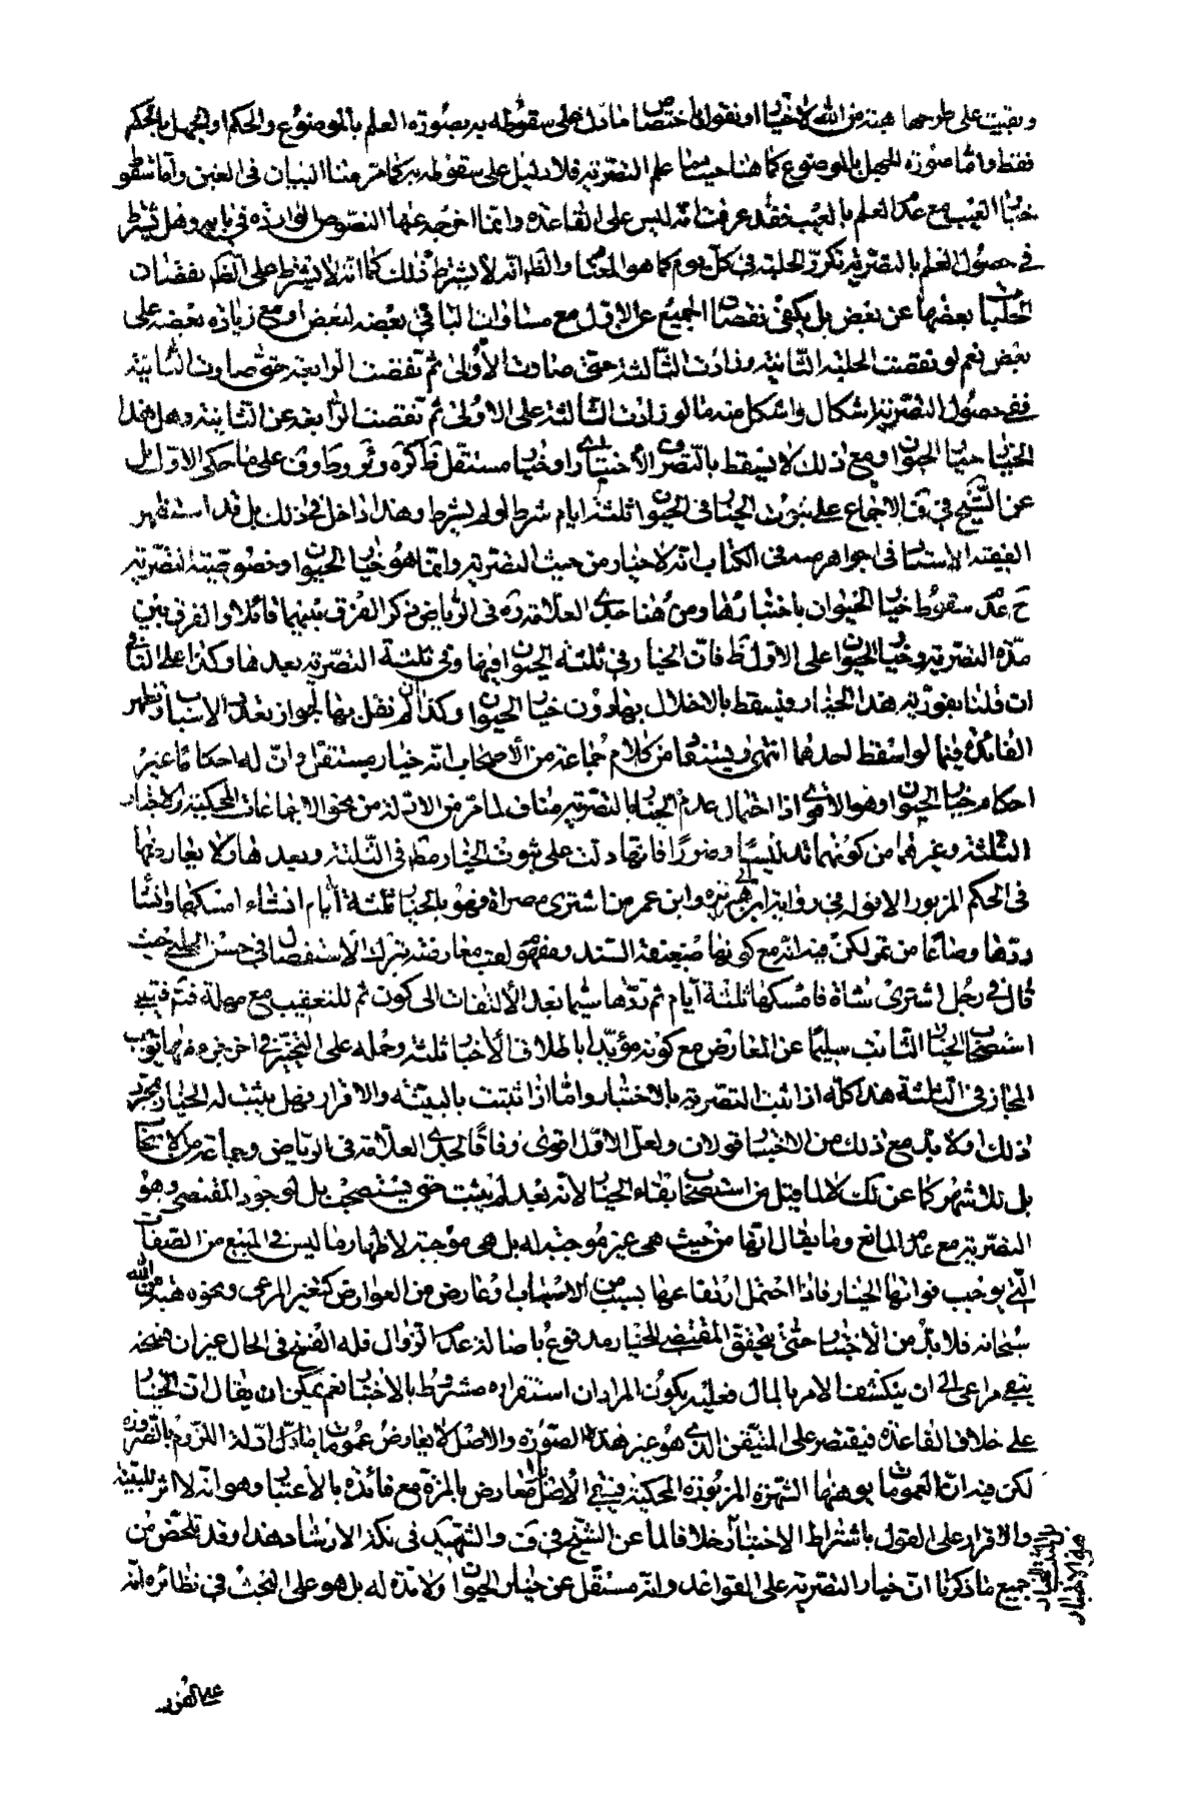 وبقيت على طرحها هبة من الله لاخيار او نقول باختصاص ما دل على سقوطه به بصورة العلم بالموضوع والحكم او الجهل بالحكم
فقط واما صورة الجهل بالموضوع كما هنا حيث ما علم التصرية فلا دليل على سقوطه به كما مر منا البيان في الغبن واما سقوط
خيار العيب مع عدم العلم بالعيب فقد عرفت انه ليس على القاعدة وانما اخرجه عنها النصوص الواردة في بابه وهل يشترط
في حصول العلم بالتصرية تكرر الحلبة في كل يوم كما هو المعتاد والظ انه لا يشترط ذلك كما انه لا يشترط على الظ نقصان
الحلبات بعضها عن بعض بل يكفي نقصان الجميع عن الاول مع مساواة الباقي بعضه لبعض او مع زيادة بعضه على
بعض نعم لو نقصت الحلبة الثانية وزادت الثالثة حتى صارت الاولى ثم نقصت الرابعة حتى صارت الثانية
ففي حصول التصرية اشكال واشكل منه ما لو زادت الثالثة على الاولى ثم نقصت الرابعة عن الثانية وهل هذا
الخيار خيار الحيوان او مع ذلك لا يسقط بالتصرف الاختياري او خيار مستقل ظ كره وثور وطاوف على ما حكى الاول بل
عن الشيخ في ف الاجماع على ثبوت الخيار في الحيوان ثلثة ايام شرط او لم يشرط وهذا داخل في ذلك بل قد استظهر
الفقيه الاستاد في جواهره في الكتاب انه لا خيار من حيث التصرية وانما هو خيار الحيوان وخصوصية التصرية
ح عدم سقوط خيار الحيوان باختبارها ومن هنا جدي العلامة ره في الرياض ذكر الفرق بينهما قائلا والفرق بين
مدة التصرية وخيار الحيوان على الاول ظ فان الخيار في ثلثة الحيوان فيها وفي ثلثة التصرية بعدها وكذا على الثاني
ان قلنا بفورية هذا الخيار ويسقط بالاخلال بها دون خيار الحيوان وكذا ان لم نقل بها لجواز تعدد الاسباب وتظهر
الفائدة فيما لو اسقط احدهما انتهى ويستفاد من كلام جماعة من الاصحاب انه خيار مستقل وان له احكاما غير
احكام خيار الحيوان وهو الاقوى اذ احتمال عدم الخيار بالتصرية مناف لما مر من الادلة من محكي الاجماعات المحكية والاخبار
الثلثة وغيرهما من كونهما تدليسا وضررا فانها دلت على ثبوت الخيار مط في الثلثة وبعدها ولا يعارضها
في الحكم المزبور الا قوله في رواية ابي هريرة وابن عمر من اشترى مصراة فهو بالخيار ثلثة ايام ان شاء امسكها وان شاء
ردها وصاعا من تمر لكن فيه انه مع كونها ضعيفة السند ومفهوم لقب معارضة بترك الاستفصال في حسن الحلبي حيث
قال في رجل اشترى شاة فامسكها ثلثة ايام ثم ردها سيما بعد الالتفات الى كون ثم للتعقيب مع مهلة فتم فيبقى
استصحاب الخيار الثابت سليما عن المعارض مع كونه مؤيدا باطلاق الاخبار ثلثة وحمله على التخيير في اخر جزء منها توجب
المجاز في الثلثة هذا كله اذا ثبت التصرية بالاختبار واما اذا ثبتت بالبينة والاقرار فهل يثبت له الخيار بمجرد
ذلك او لا بد مع ذلك من الاختبار قولان ولعل الاول اقوى وفاقا لجدي العلامة في الرياض وجماعة من الاصحاب
بل للاشهر كما عن لك لا لما قيل من استصحاب بقاء الخيار لانه بعد لم يثبت حتى يستصحب بل لوجود المقتضي وهو
التصرية مع عدم المانع وما يقال انها من حيث هي غير موجبة له بل هي موجبة لاظهار ما ليس في المبيع من الصفات
التي يوجب فواتها الخيار فاذا احتمل ارتفاعها بسبب من الاسباب وعارض من العوارض كتغير المرعى ونحوه هبة من الله
سبحانه فلا بد من الاختبار حتى يتحقق المقتضي للخيار مدفوع باصالة عدم الزوال فله الفسخ في الحال غير ان فسخه
يبقى مراعى الى ان ينكشف الامر بالمال فعليه يكون المراد ان استقراره مشروط بالاختبار نعم يمكن ان يقال ان الخيار
على خلاف القاعدة فيقتصر على المتيقن الذي هو غير هذه الصورة والاصل لا يعارض عموم ما دل ادلة اللزوم بالضرورة
لكن فيه ان العمومات يوهنها الشهرة المزبورة المحكية فيبقى الاصل بلا معارض بالمرة مع فائدة بالاعتبار وهو انه لا اثر للبينة
والاقرار على القول باشتراط الاختبار خلافا لما عن الشيخ في ف والتمهيد في نكت الارشاد هذا وقد تلخص من
جميع ما ذكرنا ان خيار التصرية على القواعد وانه مستقل عن خيار الحيوان ولا مدة له بل هو على البحث في نظائره انه
على الفور